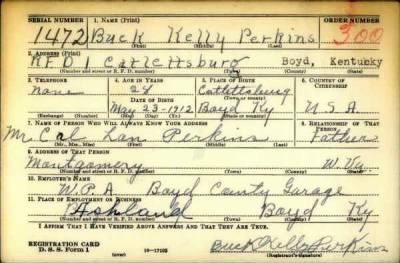 SERIAL NUMBER 1. NAME (Print) ORDER NUMBER
1472 Buck Kelly Perkins 300
(First) (Middle) (Last)
2. ADDRESS (Print)
R.F.D 1 Catlettsburg Boyd, Kentucky
(Number and street or R. F. D. number) (Town) (County) (State)
3. TELEPHONE 4. AGE IN YEARS 5. PLACE OF BIRTH 6. COUNTRY OF CITIZENSHIP
None 28 Catlettsburg
DATE OF BIRTH (Town or county)
May 23-1912 Boyd Ky U.S.A
(Exchange) (Number) (Mo.) (Day) (Yr.) (State or country)
7. NAME OF PERSON WHO WILL ALWAYS KNOW YOUR ADDRESS 8. RELATIONSHIP OF THAT PERSON
Mr Cal Lan Perkins Father
(Mr., Mrs., Miss) (First) (Middle) (Last)
9. ADDRESS OF THAT PERSON
Montgomery W. Va.
(Number and street or R. F. D. number) (Town) (County) (State)
10. EMPLOYER'S NAME
W.P.A Boyd County Garage
11. PLACE OF EMPLOYMENT OR BUSINESS
Ashland Boyd Ky
(Number and street or R. F. D. number) (Town) (County) (State)
I AFFIRM THAT I HAVE VERIFIED ABOVE ANSWERS AND THAT THEY ARE TRUE.
REGISTRATION CARD
D. S. S. Form 1 (over) 16-17105 Buck Kelly Perkins
(Registrant's signature)